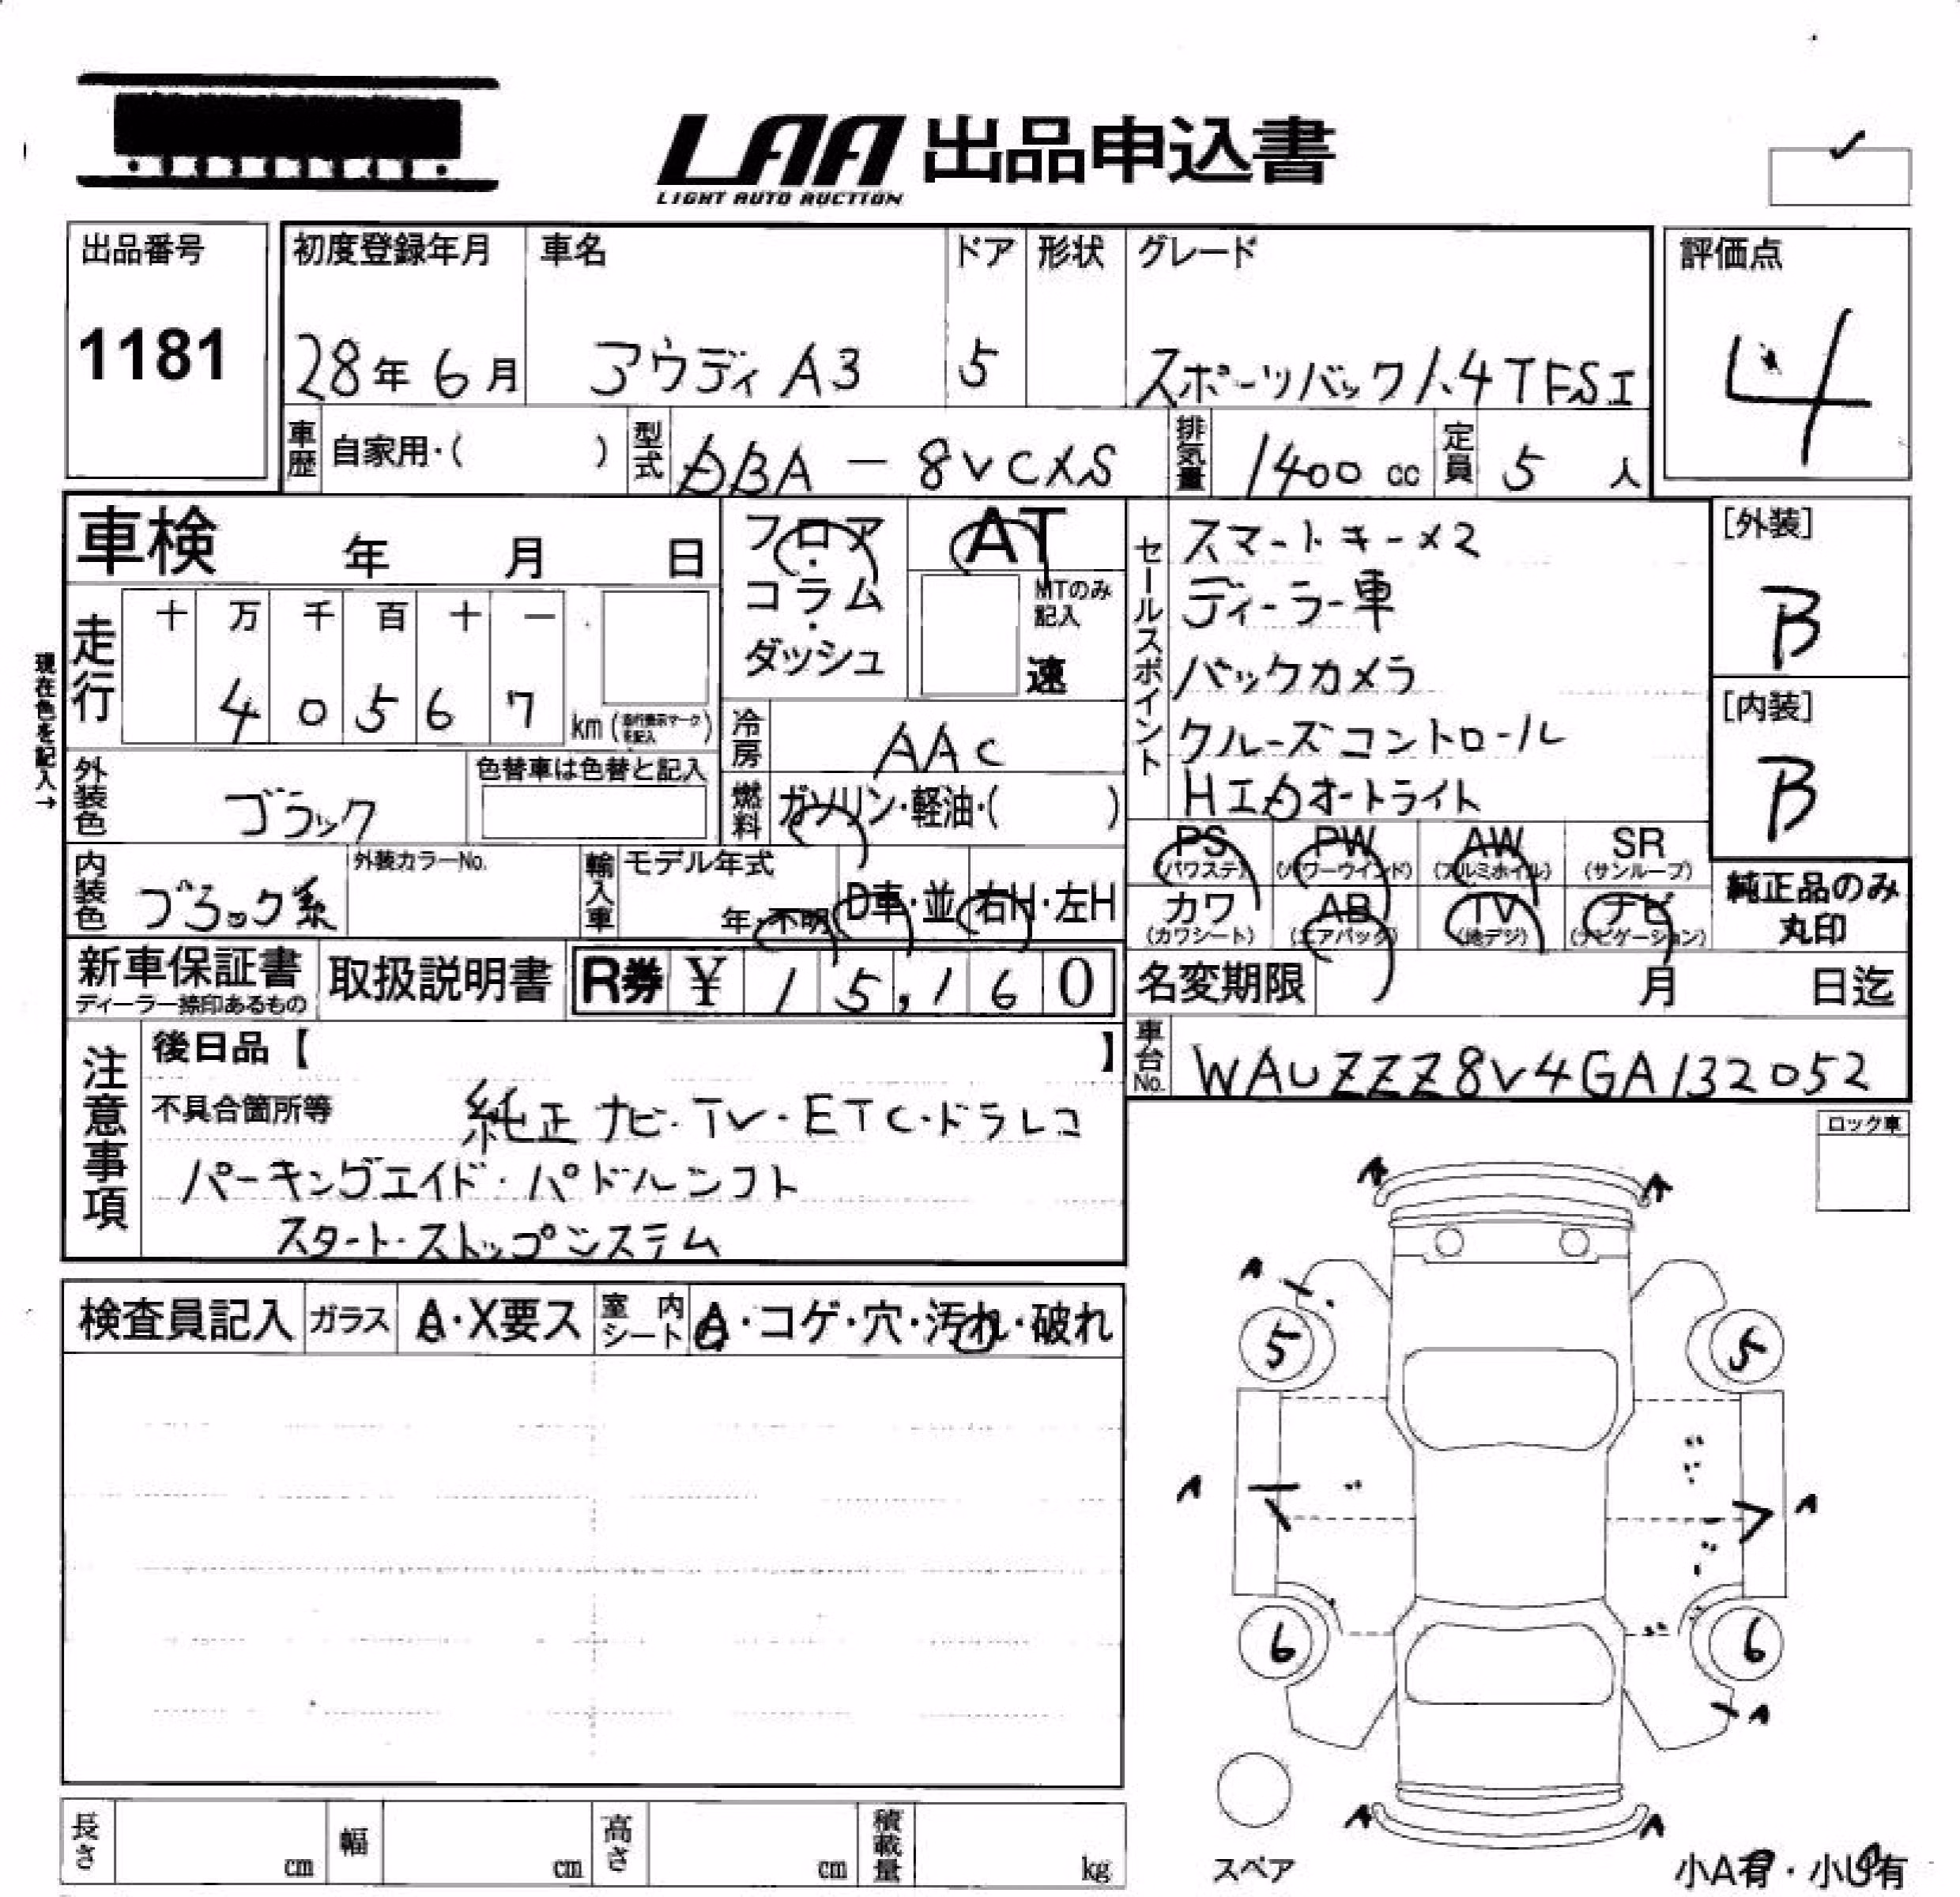 LAA 出品申込書
LIGHT AUTO AUCTION
出品番号
1181
初度登録年月
28年 6月
車名
アウディ A3
ドア
5
形状
グレード
スポーツバック 1.4TFSI
評価点
4
車歴 自家用・( )
型式 DBA - 8VCXS
排気量 1400 cc
定員 5 人
車検 年 月 日
フロア・コラム・ダッシュ
AT
MTのみ記入
速
セールスポイント
スマートキー×2
ディーラー車
バックカメラ
クルーズコントロール
HIDオートライト
[外装]
B
[内装]
B
現在色を記入→
走行
十 万 千 百 十 一
4 0 5 6 7 km
冷房 AAC
外装色 ブラック
色替車は色替と記入
燃料 ガソリン・軽油・( )
PS (パワステ)
PW (パワーウインド)
AW (アルミホイル)
SR (サンルーフ)
カワ (カワシート)
AB (エアバッグ)
TV (地デジ)
ナビ (ナビゲーション)
純正品のみ丸印
内装色 ブラック系
外装カラーNo.
輸入車 モデル年式
年・不明
D車・並
右H・左H
新車保証書
ディーラー捺印あるもの
取扱説明書
R券 ¥ 15,160
名変期限 月 日迄
車台No. WAUZZZ8V4GA132052
注意事項
後日品【 】
不具合箇所等 純正ナビ・TV・ETC・ドラレコ
パーキングエイド・パドルシフト
スタート・ストップシステム
ロック車
検査員記入 ガラス A・X要ス 室内シート A・コゲ・穴・汚れ・破れ
A A
A
5 5
A A
6 6
A
A A
スペア
小A有・小U有
長さ cm 幅 cm 高さ cm 積載量 kg